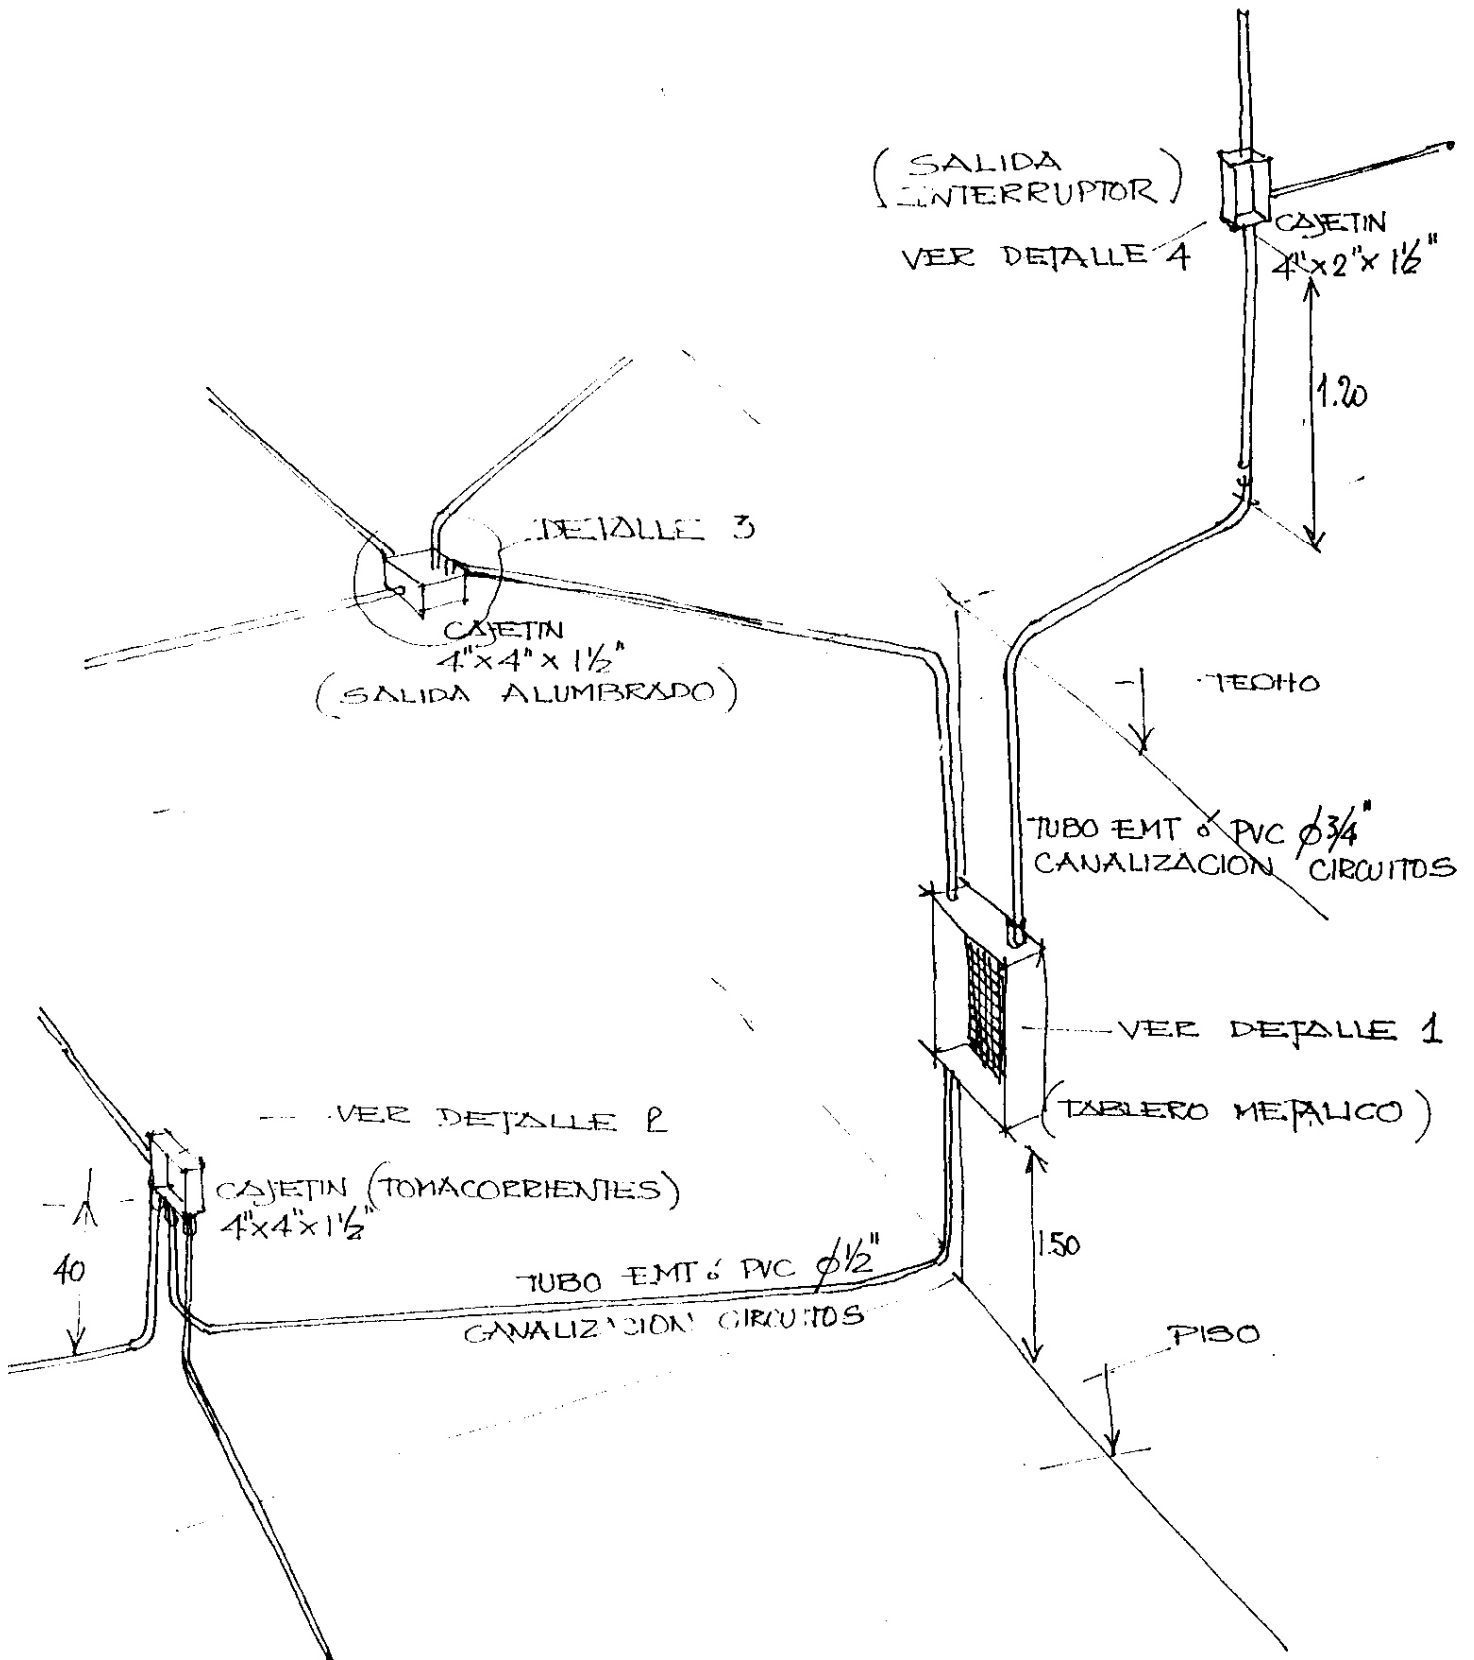 (SALIDA
INTERRUPTOR)
VER DETALLE 4
CAJETIN
4"x2"x1½"
1.20
DETALLE 3
CAJETIN
4"x4"x1½"
(SALIDA ALUMBRADO)
TECHO
TUBO EMT ó PVC ϕ3/4"
CANALIZACION CIRCUITOS
VER DETALLE 1
(TABLERO METALICO)
VER DETALLE 2
CAJETIN (TOMACORRIENTES)
4"x4"x1½"
40
1.50
TUBO EMT ó PVC ϕ1/2"
CANALIZACION CIRCUITOS
PISO